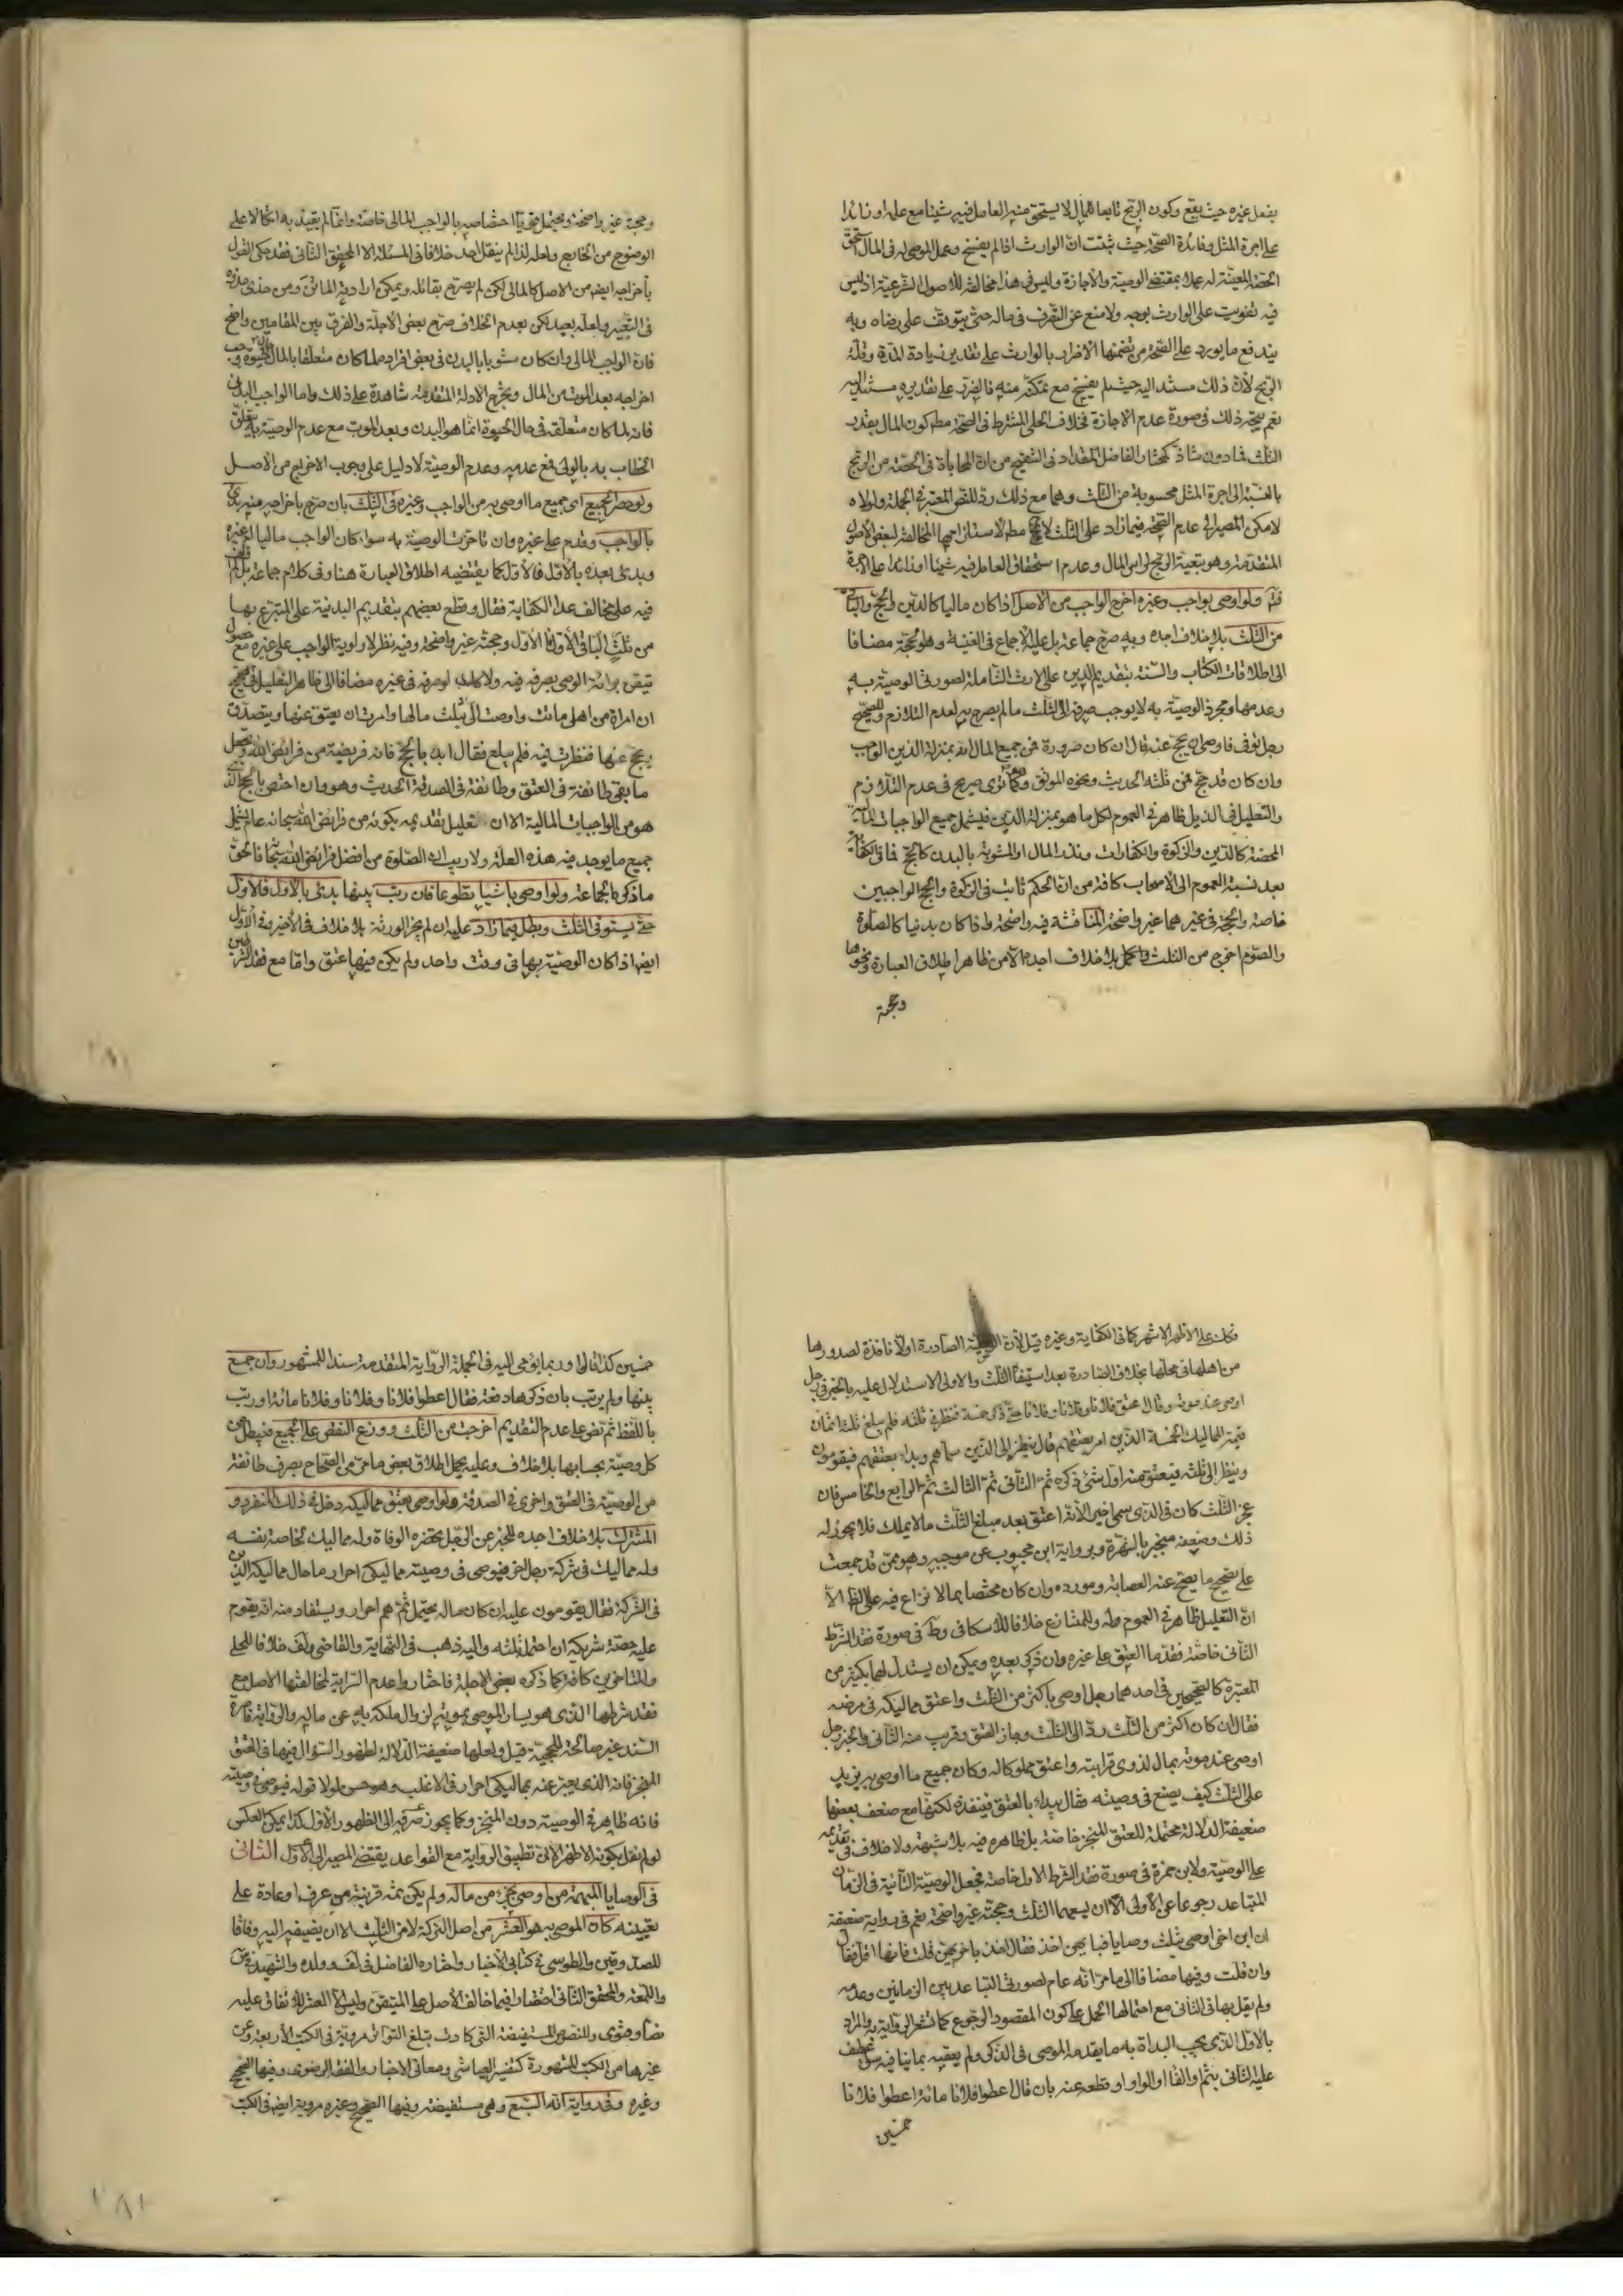 بفعل غيره حيث يقع وكون الربح تابعا للمال لا يستحق منه العامل فيه شيئا مع علمه او زائدا
على اجرة المثل وفائدة الصحة حيث ثبتت ان الوارث اذا لم يفسخ وعمل الموصى له في المال استحق
الحصة المعينة له عملا بمقتضى الوصية والاجازة وليس في هذا مخالفة للاصول الشرعية اذ ليس
فيه تفويت على الوارث بوجه ولا منع عن التصرف في ماله حتى يتوقف على رضاه وبه
يندفع ما يورد على الصحة من تضمنها الاضرار بالوارث على تقدير زيادة المدة وقلة
الربح لان ذلك مستند اليه حيث لم يفسخ مع تمكنه منه فالضرر على تقديره مستند اليه
نعم يتجه ذلك في صورة عدم الاجازة خلاف الحلي المشترط في الصحة مط كون المال بقدر
الثلث فما دون شاذ كمختار الفاضل المقداد في التنقيح من ان المحاباة في الحصة من الربح
بالنسبة الى اجرة المثل محسوبة من الثلث وهما مع ذلك رد للنص المعتبر في الجملة ولولاه
لامكن المصير الى عدم الصحة فيما زاد على الثلث لا مط لاستلزامها المخالفة لبعض الاصول
المتقدمة وهو تبعية الربح لراس المال وعدم استحقاق العامل فيه شيئا او زائدا على الاجرة
ولو اوصى بواجب وغيره اخرج الواجب من الاصل اذا كان ماليا كالدين والحج والباقي
من الثلث بلا خلاف اجده وبه صرح جماعة بل عليه الاجماع في الغنية وهو الحجة مضافا
الى اطلاقات الكتاب والسنة بتقديم الدين على الارث الشاملة لصورتي الوصية به
وعدمها ومجرد الوصية به لا يوجب صرفه الى الثلث ما لم يصرح به لعدم التلازم وللصحيح
رجل توفى فاوصى ان يحج عنه قال ان كان صرورة فمن جميع المال انه بمنزلة الدين الواجب
وان كان قد حج فمن ثلثه الحديث ونحوه الموثق وهو كما ترى صريح في عدم التلازم
والتعليل في الذيل ظاهر في العموم لكل ما هو بمنزلة الدين فيشمل جميع الواجبات المالية
المحضة كالدين والزكوة والكفارات ونذر المال او المشوبة بالبدن كالحج فما في الكفاية
بعد نسبة العموم الى الاصحاب كافة من ان الحكم ثابت في الزكوة والحج الواجبين
خاصة والحجة في غيرهما غير واضحة المناقشة فيه واضحة واذا كان بدنيا كالصلوة
والصوم اخرج من الثلث بلا خلاف اجده الا من ظاهر اطلاق العبارة ونحوها
وحجته
وحجته غير واضحة ويحتمل قويا اختصاصه بالواجب المالي خاصة وانما لم يقيد به اتكالا على
الوضوح من الخارج ولعله لذا لم ينقل احد خلافا في المسئلة الا المحقق الثاني فقد حكى القول
باخراجه ايض من الاصل كالمالي لكن لم يصرح بقائله ويمكن ارادته الماتن ومن حذى حذوه
في التعبير ولعله بعيد لكن بعدم الخلاف صرح بعض الاجلة والفرق بين المقامين واضح
فان الواجب المالي وان كان مشوبا بالبدن في بعض افراده لما كان متعلقا بالمال حال الحيوة وجب
اخراجه بعد الموت من المال وبخرج الادلة المتقدمة شاهدة على ذلك واما الواجب البدني
فانه لما كان متعلقه في حال الحيوة انما هو البدن وبعد الموت مع عدم الوصية به يتعلق
الخطاب به بالولي فمع عدمه وعدم الوصية لا دليل على وجوب الاخراج من الاصل
ولو حصر الجميع اي جميع ما اوصى به من الواجب وغيره في الثلث بان صرح باخراجه منه بدئ
بالواجب وقدم على غيره وان تاخرت الوصية به سواء كان الواجب ماليا ام غيره
وبدئ بعده بالاول فالاول كما يقتضيه اطلاق العبارة هنا وفي كلام جماعة بل لم
فيه على مخالف عدا الكفاية فقال وقطع بعضهم بتقديم البدنية على المتبرع بها
من ثلث الباقي الاول فالاول وحجته غير واضحة وفيه نظر لاولوية الواجب على غيره مع حصول
تيقن برائة الوصي بصرفه فيه ولا كذلك لو صرفه في غيره مضافا الى ظاهر التعليل في الصحيح
ان امراة من اهلي ماتت واوصت الى بثلث مالها وامرت ان يعتق عنها ويتصدق
ويحج عنها فنظرت فيه فلم يبلغ فقال ابدء بالحج فانه فريضة من فرائض الله ويجعل
ما بقى طائفة في العتق وطائفة في الصدقة الحديث وهو وان اختص بالحج الذي
هو من الواجبات المالية الا ان تعليل تقديمه بكونه من فرائض الله سبحانه عام يشمل
جميع ما يوجد فيه هذه العلة ولا ريب ان الصلوة من افضل فرائض الله سبحانه فالحق
ما ذكره الجماعة ولو اوصى باشياء تطوعا فان رتب بينها بدئ بالاول فالاول
حتى يستوفى الثلث وبطل فيما زاد عليه ان لم يجز الورثة بلا خلاف في الاخير وفي الاول
ايض اذا كان الوصية بها في وقت واحد ولم يكن فيها عتق واما مع فقد الشرطين
فكك على الاظهر الاشهر كما في الكفاية وغيره قيل لان الوصية الصادرة اولا نافذة لصدورها
من اهلها في محلها بخلاف الصادرة بعد استيفاء الثلث والاولى الاستدلال عليه بالخبر في رجل
اوصى عند موته وقال اعتق فلانا وفلانا وفلانا حتى ذكر خمسة فنظر في ثلثه فلم يبلغ ثلثه اثمان
قيمة المماليك الخمسة الذين امر بعتقهم قال ينظر الى الذين سماهم وبدء بعتقهم فيقومون
وينظر الى ثلثه فيعتق منه اول شئ ذكره ثم الثاني ثم الثالث ثم الرابع والخامس فان
عجز الثلث كان في الذي سمى اخيرا لانه اعتق بعد مبلغ الثلث ما لا يملك فلا يجوز له
ذلك وضعفه منجبر بالشهرة وبرواية ابن محبوب عن موجبه وهو ممن قد جمعت
على تصحيح ما يصح عنه العصابة ومورده وان كان مختصا بما لا نزاع فيه على الظ الا
ان التعليل ظاهر في العموم له وللمشايع خلافا للاسكافي وط في صورة فقد الشرط
الثاني خاصة فقدما العتق على غيره وان ذكر بعده ويمكن ان يستدل لهما بكثير من
المعتبرة كالصحيحين في احدهما رجل اوصى باكثر من الثلث واعتق مماليكه في مرضه
فقال ان كان اكثر من الثلث رد الى الثلث وجاز العتق وقريب منه الثاني والخبر رجل
اوصى عند موته بمال لذوي قرابته واعتق مملوكا له وكان جميع ما اوصى به يزيد
على الثلث كيف يصنع في وصيته فقال يبدء بالعتق فينفذه لكنها مع ضعف بعضها
ضعيفة الدلالة محتملة للعتق المنجز خاصة بل ظاهره فيه بلا شبهة ولا خلاف في تقديمه
على الوصية ولابن حمزة في صورة فقد الشرط الاول خاصة فجعل الوصية الثانية في الزمان
المتباعد رجوعا عن الاولى الا ان يسعهما الثلث وحجته غير واضحة نعم في رواية ضعيفة
ان ابن اخي اوصى بثلث وصايا فبايهن اخذ فقال اخذ باخريهن قلت فانها اقل فقال
وان قلت وفيها مضافا الى ما مر انه عام لصورتي التباعد بين الزمانين وعدمه
ولم يقل بها في الثاني مع احتمالها الحمل على كون المقصود الرجوع كما تشعر الرواية به والمراد
بالاول الذي يجب البداة به ما يقدمه الموصي في الذكر ولم يعقبه بما ينافيه سواء عطف
عليه الثاني بثم او الفاء او الواو او قطعه عنه بان قال اعطوا فلانا مائة اعطوا فلانا
خمسين
خمسين كذا قالوا وربما يؤمي اليه في الجملة الرواية المتقدمة سندا للمشهور وان جمع
بينها ولم يرتب بان ذكرها دفعة فقال اعطوا فلانا وفلانا وفلانا مائة او رتب
باللفظ ثم نص على عدم التقديم اخرجت من الثلث ووزع النقص على الجميع فيبطل من
كل وصية بحسابها بلا خلاف وعليه يحمل اطلاق بعض ما مر من الصحاح بصرف طائفة
من الوصية في العتق واخرى في الصدقة ولو اوصى بعتق مماليكه دخل في ذلك المنفرد و
المشترك بلا خلاف اجده للخبر عن الرجل يحضره الوفاة وله مماليك لخاصة نفسه
وله مماليك في شركة رجل اخر فيوصي في وصيته مماليكي احرار ما حال مماليكه الذين
في الشركة فقال يقومون عليه ان كان ماله يحتمل ثم هم احرار ويستفاد منه انه يقوم
عليه حصة شريكه ان احتمله ثلثه واليه ذهب في النهاية والقاضي ولف خلافا للحلي
والمتاخرين كافة كما ذكره بعض الاجلة فاختاروا عدم السراية لمخالفتها الاصل مع
فقد شرطها الذي هو يسار الموصي بموته لزوال ملكه به عن ماله والرواية قاصرة
السند غير صالحة للحجية قيل ولعلها ضعيفة الدلالة لظهور السؤال فيها في العتق
المنجز فانه الذي يعبر عنه بمماليكي احرار في الاغلب وهو حسن لولا قوله فيوصي في وصيته
فانه ظاهر في الوصية دون المنجز وكما يجوز صرفه الى الظهور الاول كذا يمكن العكس
لو لم نقل بكونه الاظهر لان تطبيق الرواية مع القواعد يقتضي المصير الى الاول الثاني
في الوصايا المبهمة من اوصى بجزء من ماله ولم يكن ثمة قرينة من عرف او عادة على
تعيينه كان الموصى به هو العشر من اصل التركة لا من الثلث الا ان يضيفه اليه وفاقا
للصدوقين والطوسي في كتابي الاخبار واختاره الفاضل في لف وولده والشهيد في س
واللمعة والمحقق الثاني اقتصارا فيما خالف الاصل على المتيقن وليس الا العشر للاتفاق عليه
نصا وفتوى وللنصوص المستفيضة التي كادت تبلغ التواتر مروية في الكتب الاربعة وعن
غيرها من الكتب المشهورة كتفسير العياشي ومعاني الاخبار والفقه الرضوي وفيها الصحيح
وغيره وفي رواية انه السبع وهي مستفيضة وفيها الصحيح وغيره مروية ايض في الكتب